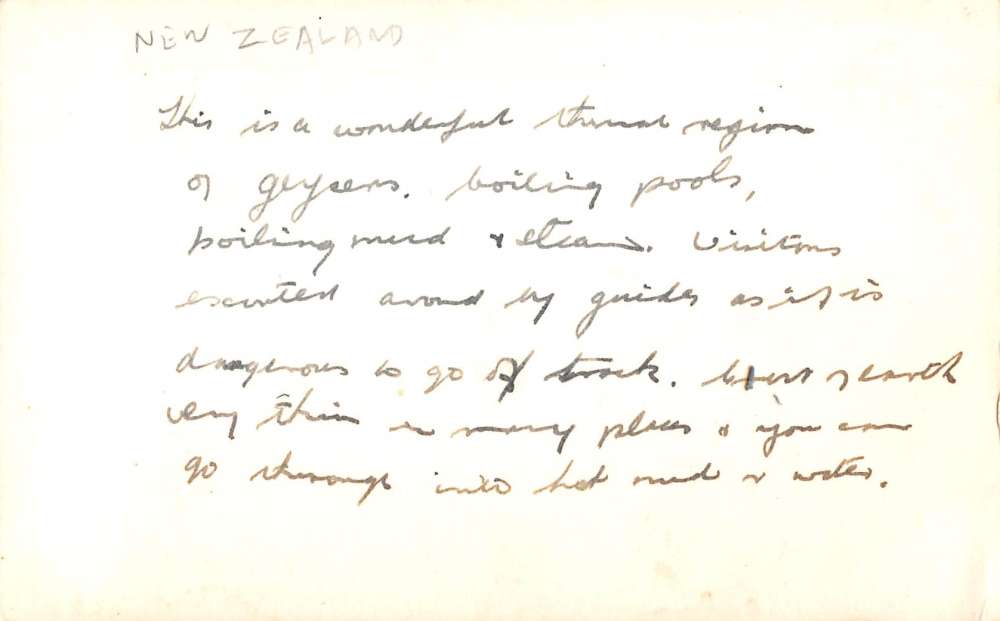 NEW ZEALAND
This is a wonderful thermal region
of geysers. boiling pools,
boiling mud & steam. Visitors
escorted around by guides as it is
dangerous to go off track. Crust of earth
very thin in many places & you can
go through into hot mud & water.